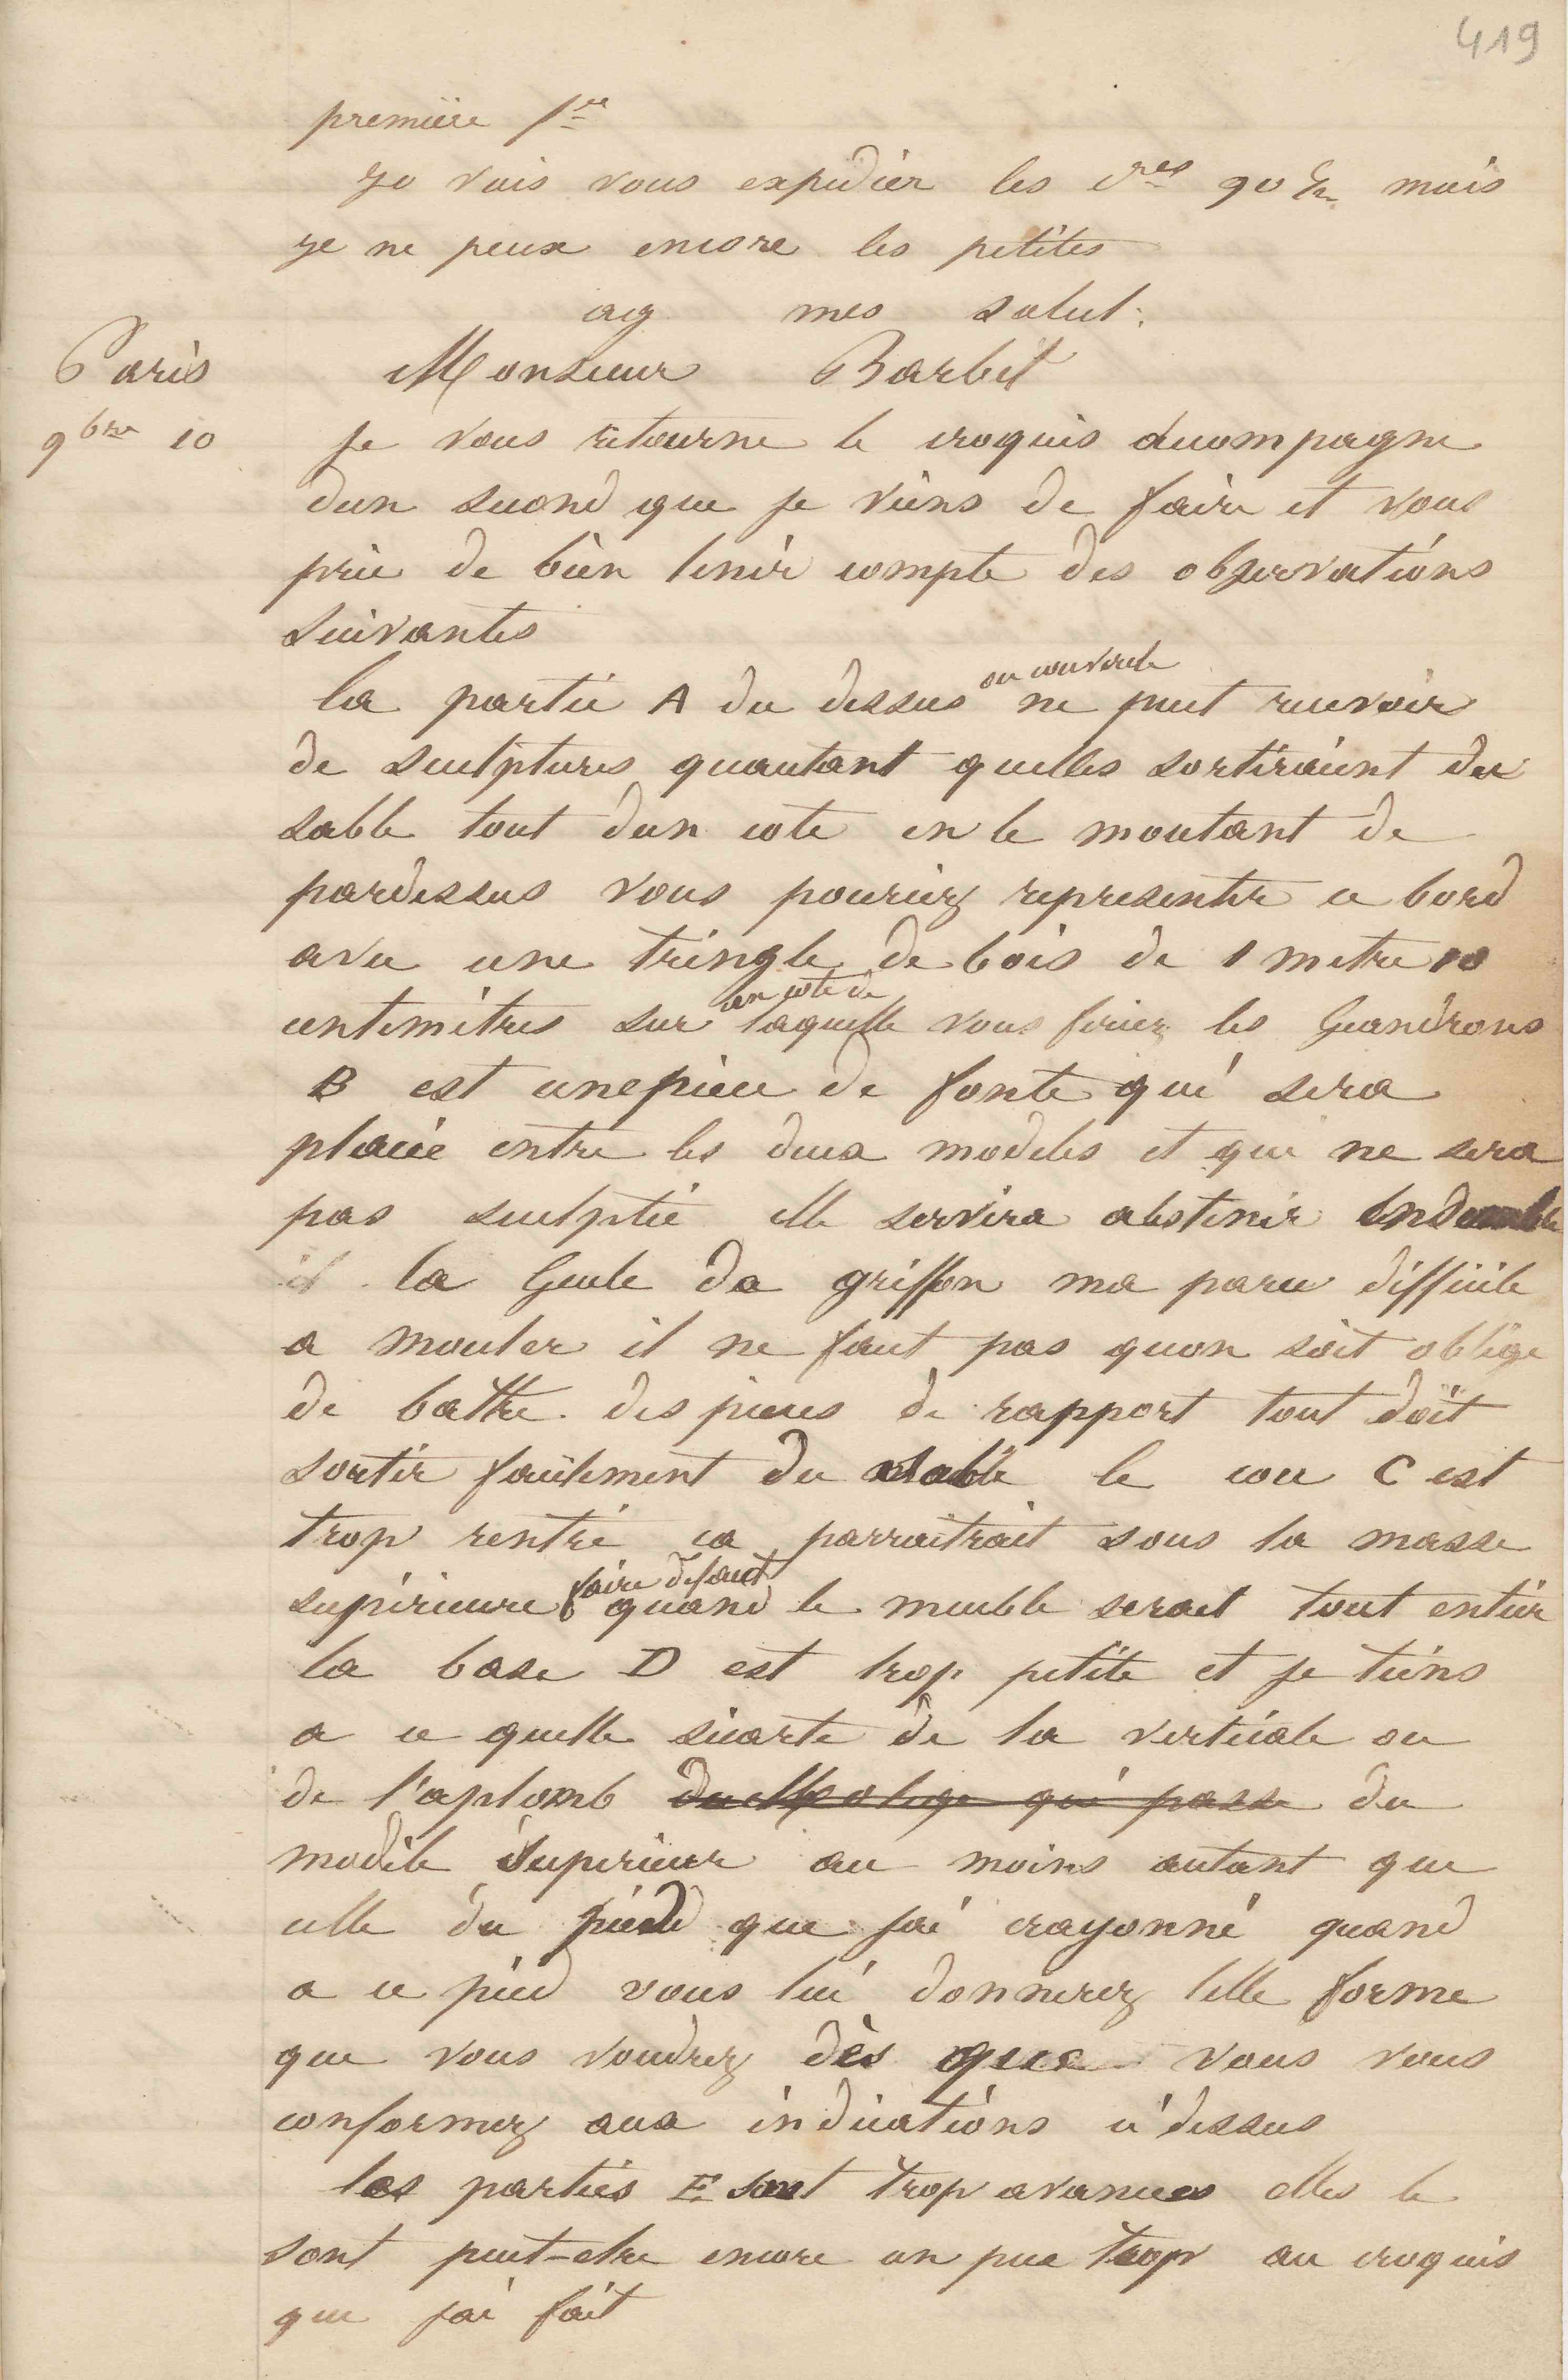 419
première fre
je vais vous expedier les mais
je ne peux encore les petites
ag mes salut.
Paris Monsieur Barbet
9bre 10 Je vous retourne le croquis accompagne
dun second que je viens de faire et vous
prie de bien tenir compte des observations
suivantes
la partie A du dessus ou couvercle ne peut recevoir
de sculptures quautant quelles sortiraient du
sable tout dun cote en le moutant de
pardessus vous pouriez representer ce bord
avec une tringle de bois de 1 metre 10
centimètres sur un cote de laquelle vous feriez les Guandrons
B est une pièce de fonte qui sera
placée entre les deux modeles et qui ne sera
pas sculptée elle servira abstenir lensemble
la Geule du griffon ma paru difficile
a mouler il ne faut pas quon soit oblige
de battre des pieces de rapport tout doit
sortir facilement du sable le cou C est
trop rentré ca parraitrait sous la masse
supérieure faire defaut quand le meuble serait tout entier
la base D est trop petite et je tiens
a ce quelle sécarte de la verticale ou
de l'aplomb du qui passe du
modèle supérieur au moins autant que
celle du pied que jai crayonné quand
a ce pied vous lui donnerez telle forme
que vous voudrez dès que vous vous
conformez aux indications ci dessus
les parties E sont trop avancees elles le
sont peut-etre encore un peu trop au croquis
que jai fait